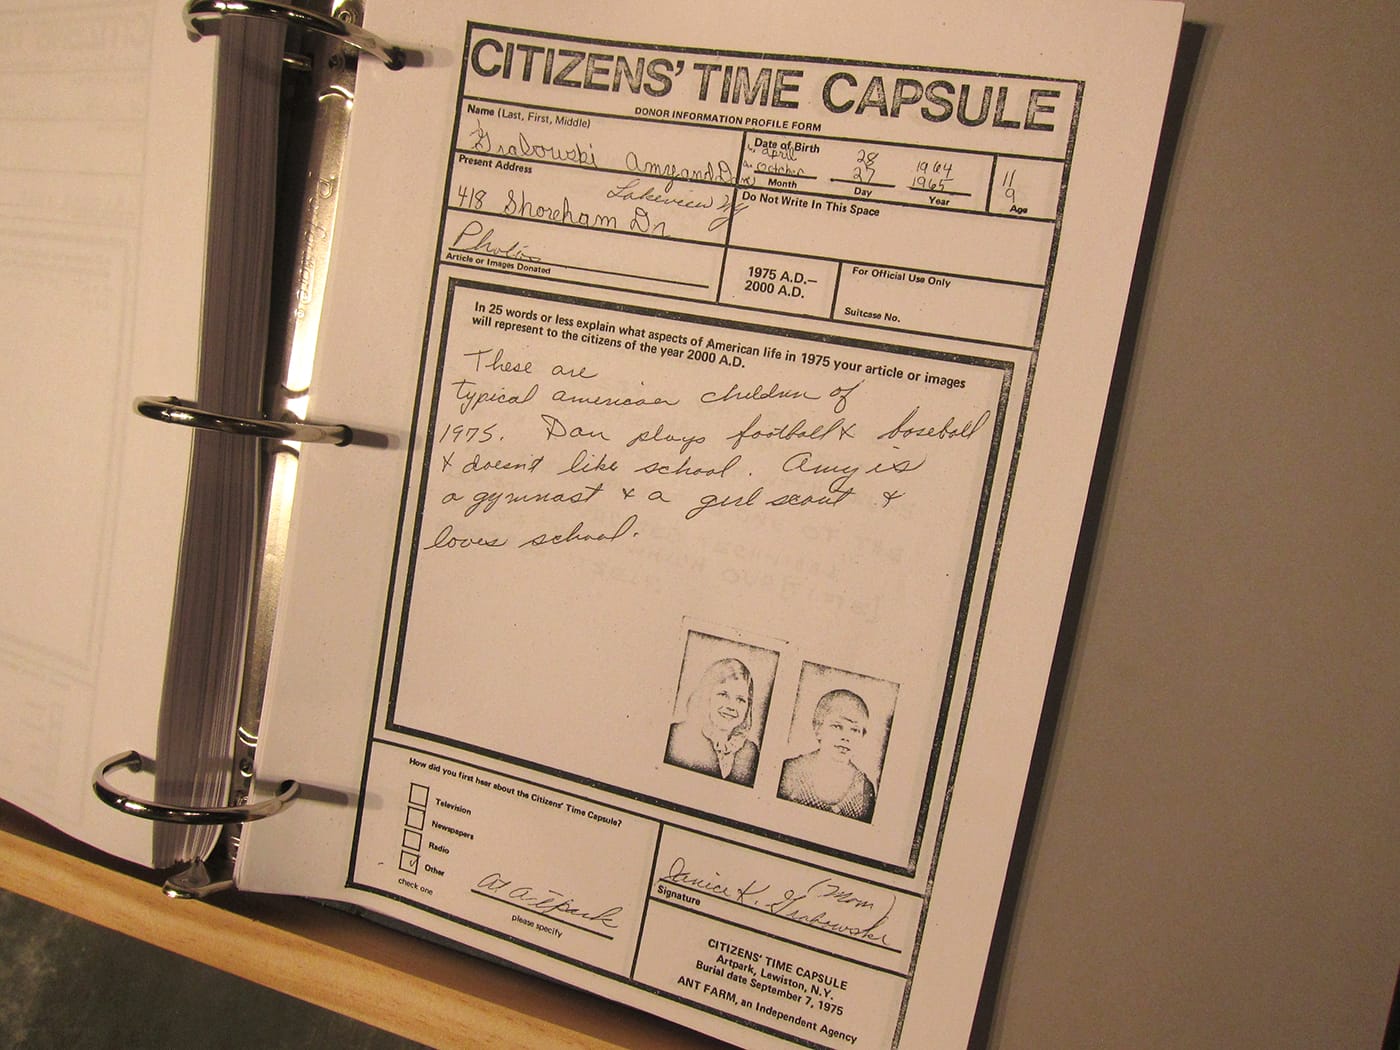 CITIZENS' TIME CAPSULE
DONOR INFORMATION PROFILE FORM
Name (Last, First, Middle)
Grabowski Amy and Dan
Date of Birth
April 28 1964
October 27 1965
Month Day Year
11
9
Age
Present Address
418 Shoreham Dr
Lakeview Ny
Do Not Write In This Space
Photos
Article or Images Donated
1975 A.D.—
2000 A.D.
For Official Use Only
Suitcase No.
In 25 words or less explain what aspects of American life in 1975 your article or images
will represent to the citizens of the year 2000 A.D.
These are
typical american children of
1975. Dan plays football & baseball
& doesn't like school. Amy is
a gymnast & a girl scout &
loves school.
How did you first hear about the Citizens' Time Capsule?
Television
Newspapers
Radio
Other
check one
At Artpark
please specify
Janice K. Grabowski
(Mom)
Signature
CITIZENS' TIME CAPSULE
Artpark, Lewiston, N.Y.
Burial date September 7, 1975
ANT FARM, an Independent Agency